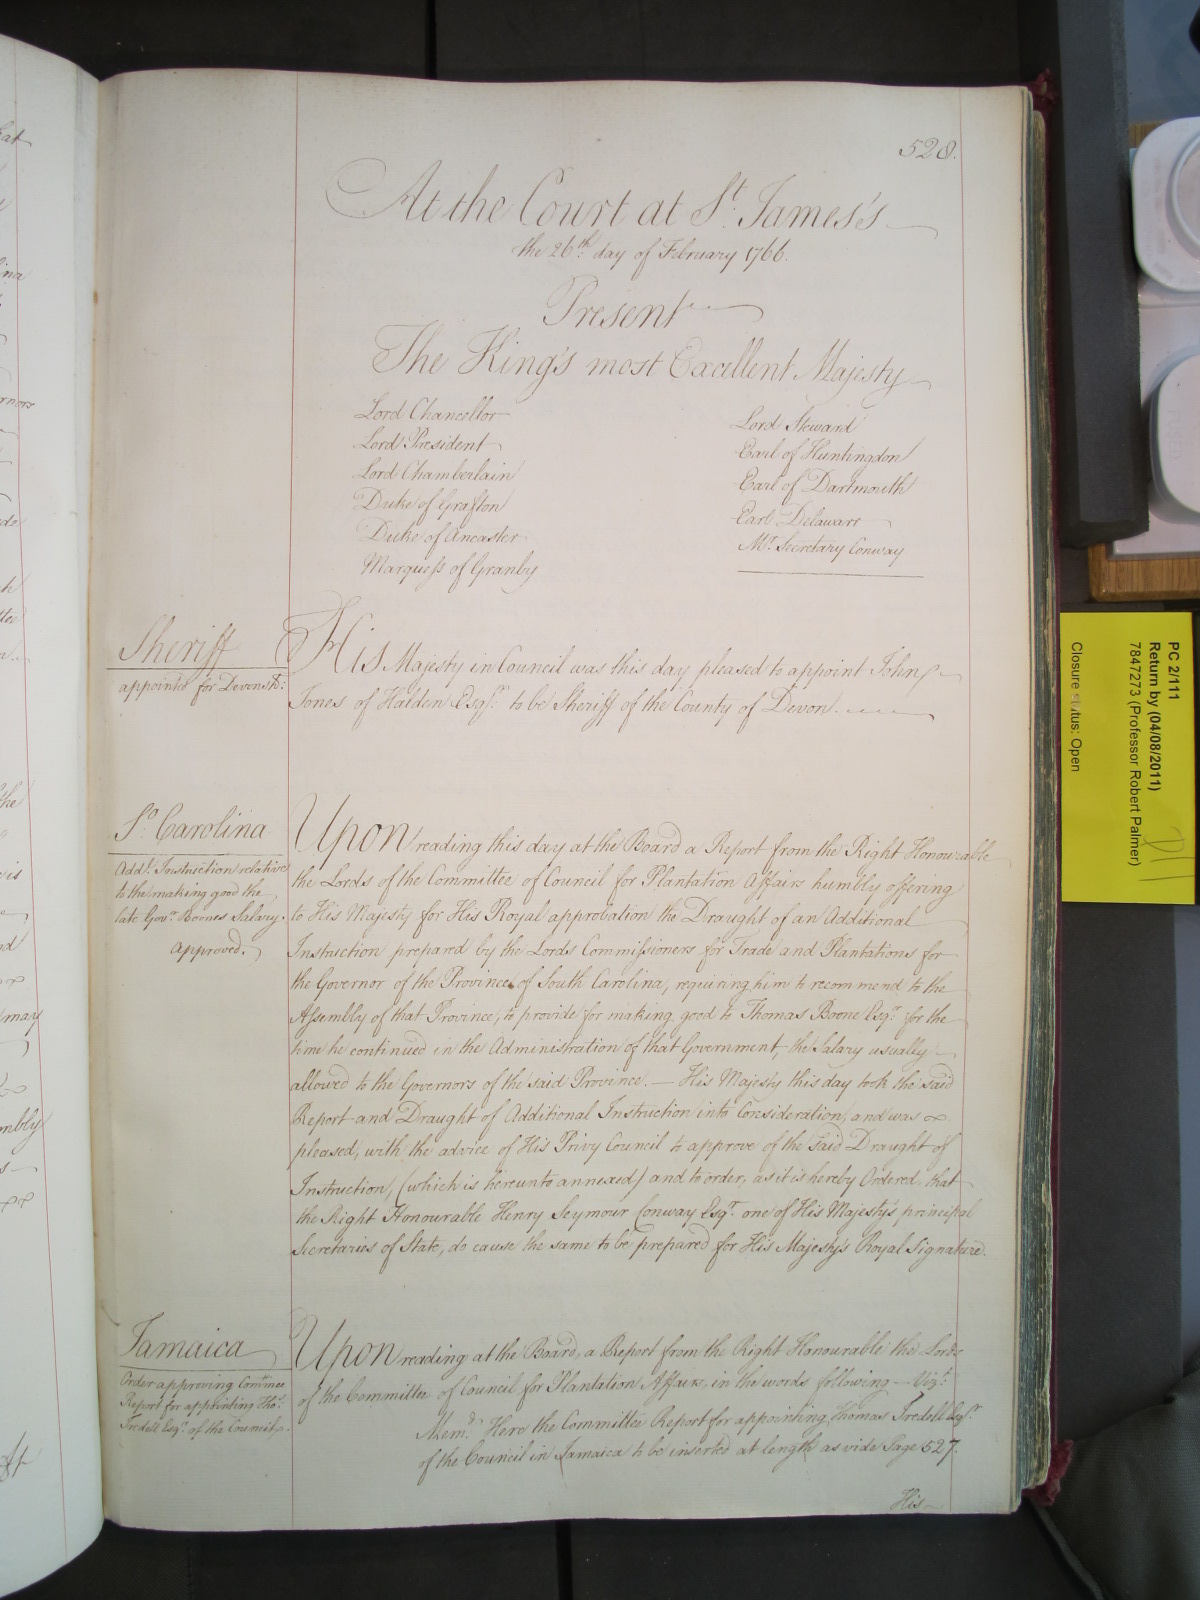 528.
At the Court at St. James's
the 26th. day of February 1766.
Present
The King's most Excellent Majesty
Lord Chancellor
Lord President
Lord Chamberlain
Duke of Grafton
Duke of Ancaster
Marquess of Granby
Lord Steward
Earl of Huntingdon
Earl of Dartmouth
Earl Delawarr
Mr. Secretary Conway
Sheriff
appointed for Devonsh:
His Majesty in Council was this day pleased to appoint John
Jones of Halden Esqr. to be Sheriff of the County of Devon.
So. Carolina
Addl. Instruction relative
to the making good the
late Govr. Boones Salary.
approved.
Upon reading this day at the Board a Report from the Right Honourable
the Lords of the Committee of Council for Plantation Affairs humbly offering
to His Majesty for His Royal approbation the Draught of an Additional
Instruction prepared by the Lords Commissioners for Trade and Plantations for
the Governor of the Province of South Carolina, requiring him to recommend to the
Assembly of that Province, to provide for making good to Thomas Boone Esqr. for the
time he continued in the Administration of that Government, the Salary usually
allowed to the Governors of the said Province. — His Majesty this day took the said
Report and Draught of Additional Instruction into Consideration, and was
pleased, with the advice of His Privy Council to approve of the said Draught of
Instruction, (which is hereunto annexed) and to order, as it is hereby Ordered, that
the Right Honourable Henry Seymour Conway Esqr. one of His Majesty's principal
Secretaries of State, do cause the same to be prepared for His Majesty's Royal Signature.
Jamaica
Order approving Commee
Report for appointing Thos.
Iredell Esqr. of the Council.
Upon reading at the Board, a Report from the Right Honourable the Lords
of the Committee of Council for Plantation Affairs, in the words following — Vizt.
Memdm. Here the Committee Report for appointing Thomas Iredell Esqr.
of the Council in Jamaica to be inserted at length as vide Page 527.
His
PC 2/111
Return by (04/08/2011)
7847273 (Professor Robert Palmer)
Closure status: Open